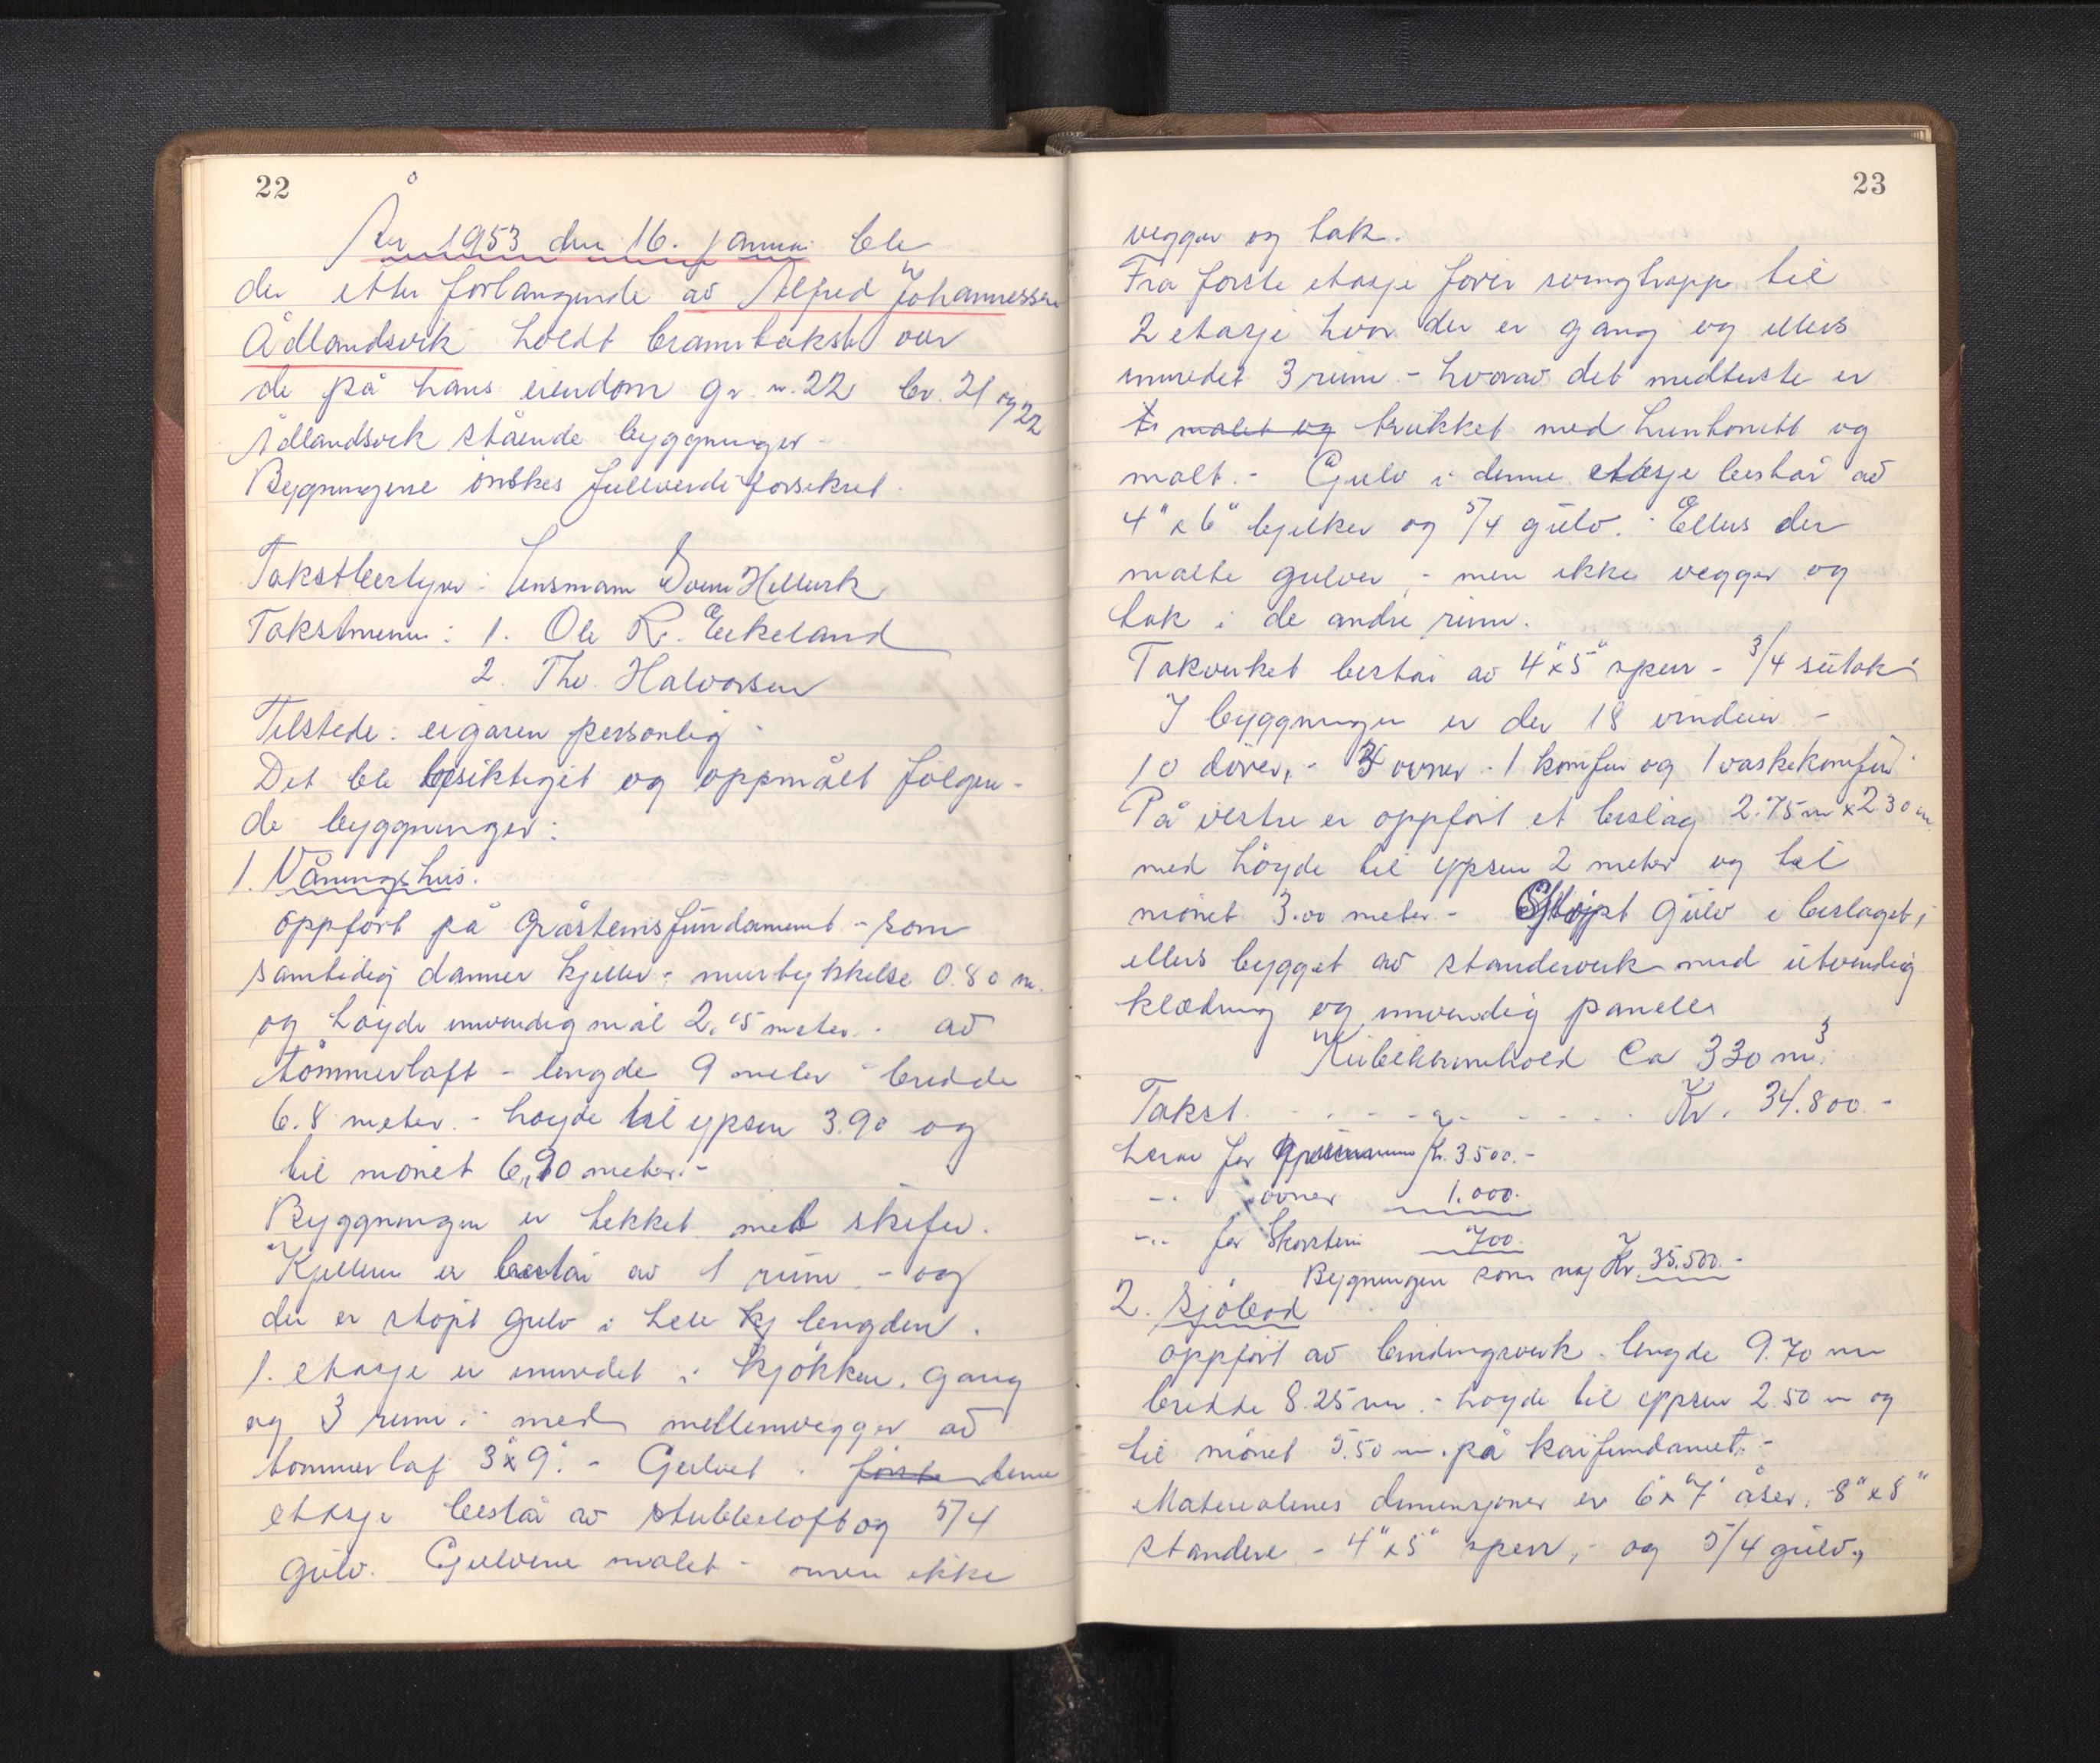 22
År 1953 den 16. januar ble
der etter forlangende av Alfred Johannessen
Ådlandsvik holdt branntakst over
de på hans eiendom gr. n. 22 br. 21 og 22
Ådlandsvik stående byggninger -
Bygningene önskes fullverdiforsikret.
Takstbestyrer: lensmann Svein Hellesvik
Takstmenn: 1. Ole R. Eikeland
2. Thv. Halvorsen
Tilstede: eigaren personlig
Det ble besiktiget og oppmålt fölgen-
de byggninger:
1. Våningshus:
oppfört på gråsteinsfundament - som
samtidig danner kjeller - murtykkelse 0.80 m.
og höyde innvendig mål 2.15 meter. - av
tömmerlaft - lengde 9 meter - bredde
6.8 meter. - höyde til ypsen 3.90 og
til mönet 6,90 meter. -
Byggningen er tekket med skifer.
Kjelleren er består av 1 rum, - og
der er stöpt gulv i hele kj lengden.
1. etasje er innredet i kjökken, gang
og 3 rum i med mellemvegger av
tömmerlaf 3"x9". - Gulvet i förste denne
etasje består av stubbeloft og 5/4
gulv. Gulvene malet - men ikke
23
vegger og tak.
Fra förste etasje förer svingtrapp til
2 etasje hvor der er gang og ellers
innredet 3 rum - hvorav det midterste er
malet og trukket med huntonitt og
malt. - Gulv i denne etasje består av
4"x6" bjelker og 5/4 gulv. - Ellers der
malte gulver, - men ikke vegger og
tak i de andre rum.
Takverket består av 4"x5" sperr - 3/4 sutak.
I byggningen er der 18 vinduer -
10 dörer, - 3 ovner - 1 komfur og 1 vaskekomfur.
På vestre er oppfört et beslag 2.75 m x 2.30 m.
med höyde til ypsen 2 meter og til
mönet 3.00 meter - Støpt gulv i beslaget,
ellers bygget av standerverk med utvendig
klædning og innvendig paneller
Kubikkinnhold Ca 330 m³.
Takst - - - - - - - - Kr. 34.800 -
herav for Kr. 3500.-
-"- ovner 1.000.
-"- for Skorstein 700.
Bygningen som ny Kr. 35.500.-
2. Sjöbod
oppfört av bindingsverk - lengde 9.70 m
bredde 8.25 m. - höyde til ypsen 2.50 m og
til mönet 5.50 m. på kaifundament. -
Materialenes dimensjoner er 6"x7" åser, - 8"x8"
standere - 4"x5" sperr, - og 5/4 gulv,